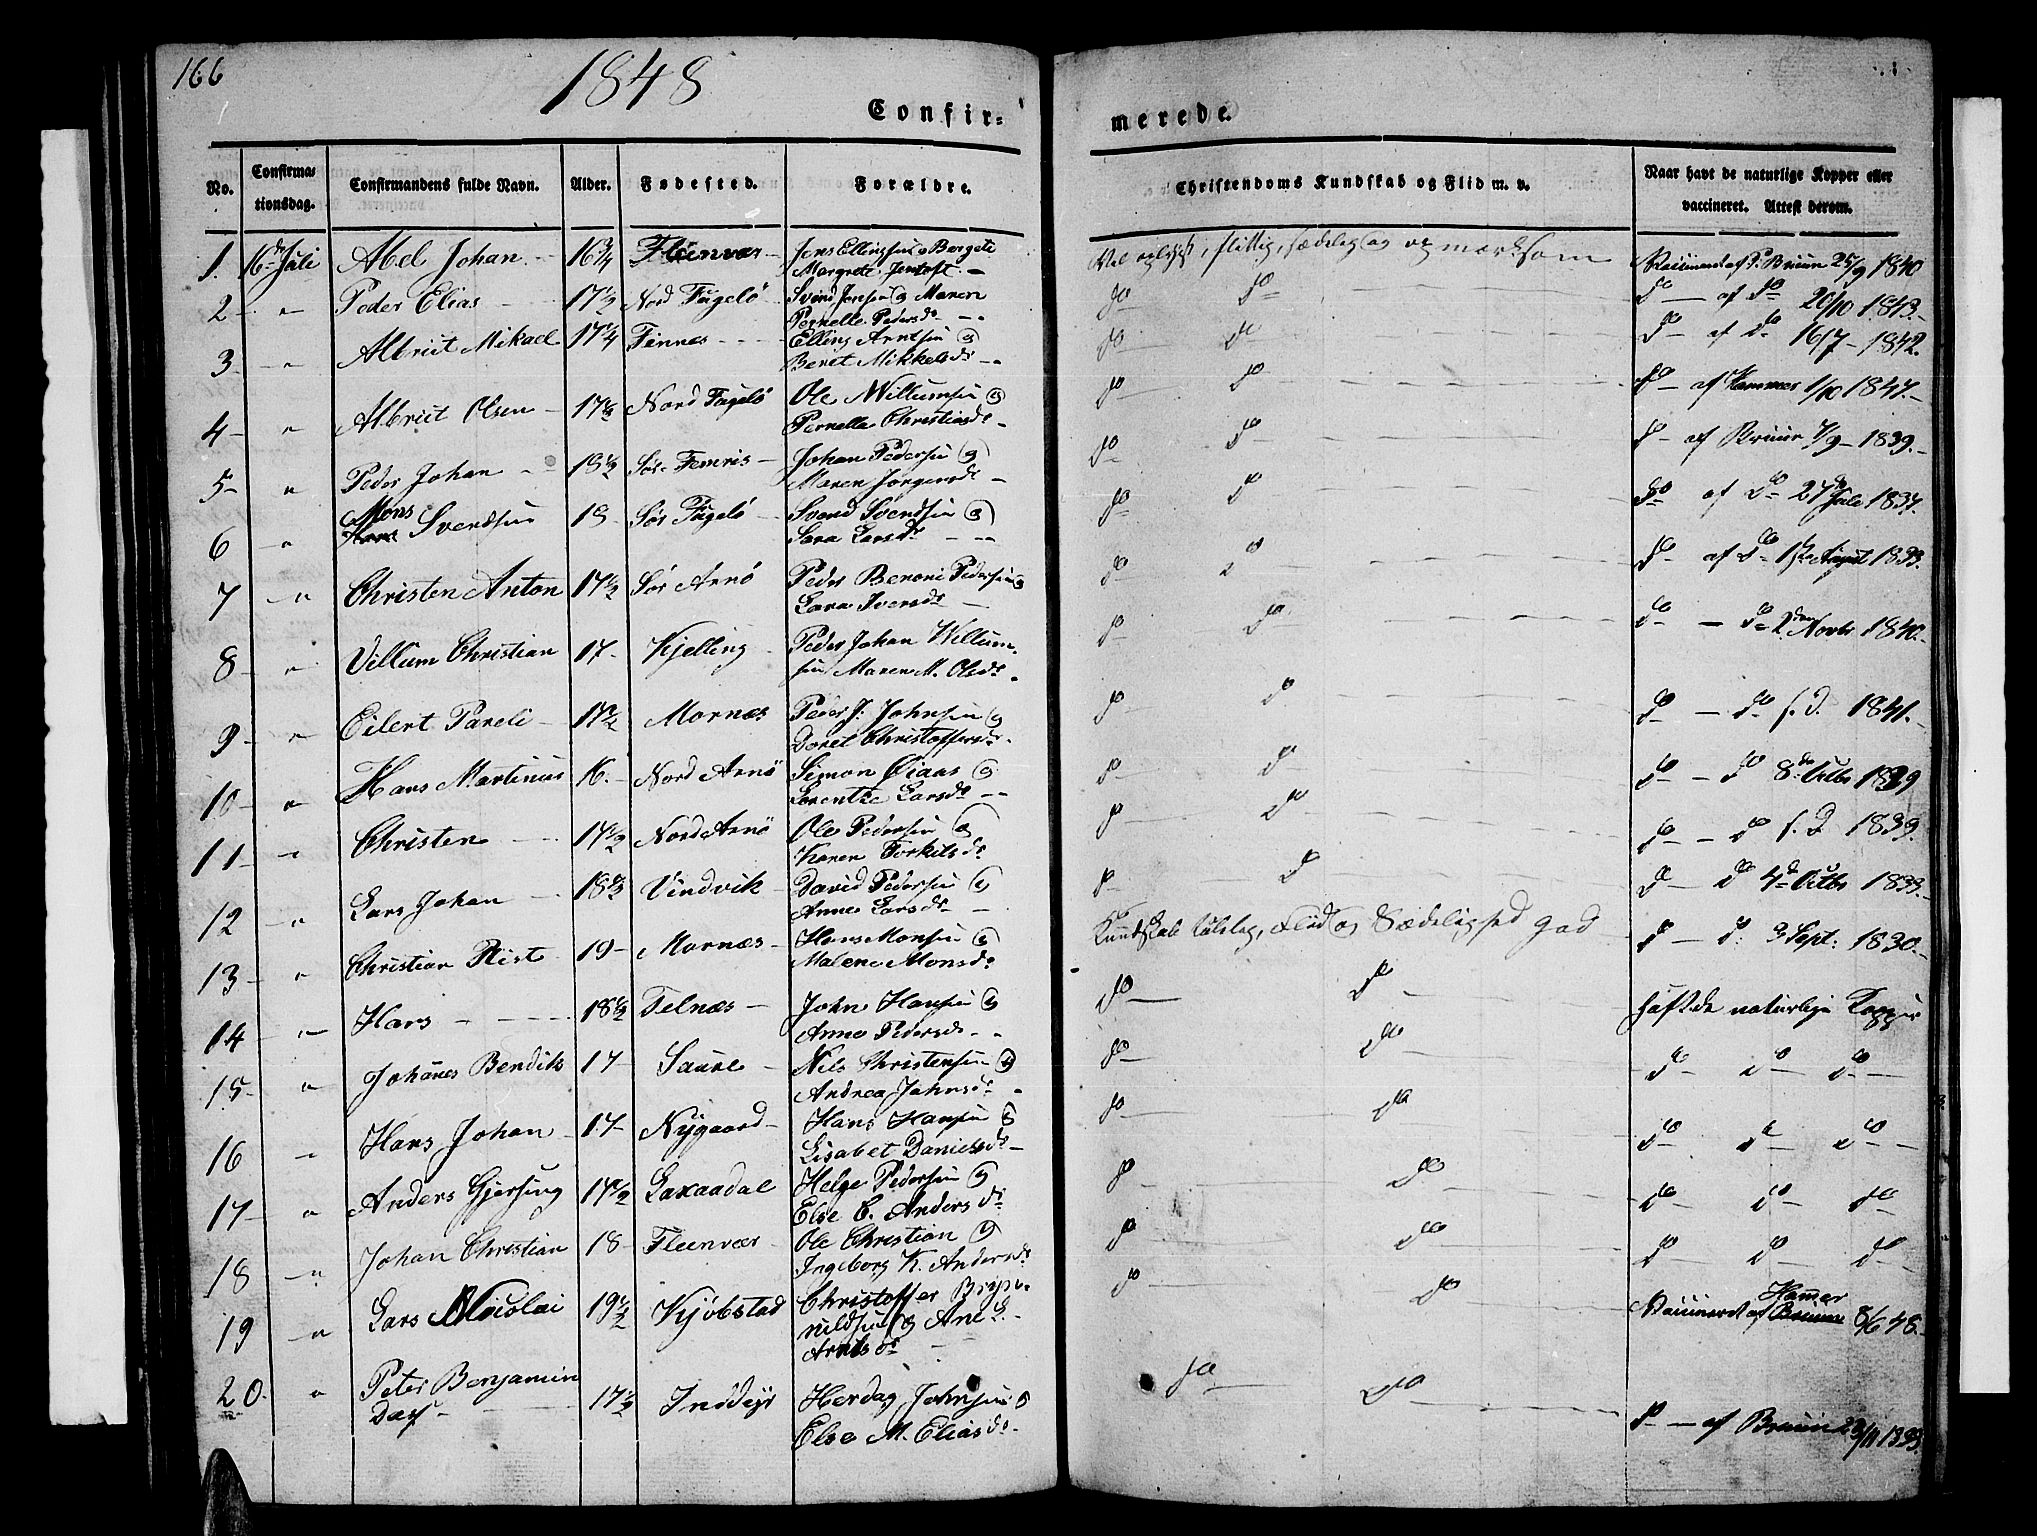 166
1848
Confir-
merede.
No. Confirmationsdag. Confirmandens fulde Navn. Alder. Fødested. Forældre. Christendoms Kundskab og Flid m. v. Naar havt de naturlige Kopper eller vaccineret. Attest derom.
1. 16de Juli Abel Johan 16 3/4 Fleinvær Jens Ellingsen og Bergete Margrete Jentoft Vel oplyst, flittig, sædelig og opmærksom Vaccineret af P. Bruun 25/9 1840
2 " Peder Elias 17 1/2 Nord Fugelö Svend Jensen og Maren Pernelle Pedersdr do do do af do 20/10 1843.
3 " Albrict Mikael 17 1/4 Finnes Elling Arntsen og Beret Mikkelsdr do do do af do 16/7 1842.
4 " Albrict Olsen 17 1/2 Nord Fugelö Ole Willumsen og Pernelle Christiansdr do do do af Hammer 1/10 1847.
5 " Peder Johan 19 1/2 Sör-Femris Johan Pedersen og Maren Jörgensdr do do do af Bruun 7/9 1839.
6 " Mons Svendsen 19 Sör Fugelö Svend Svendsen og Sara Larsdr do do do af do 27de Juli 1837.
7 " Christen Anton 17 1/2 Sör Arnö Peder Benoni Pedersen og Lara Iversdr do do do af do 1ste August 1833.
8 " Villum Christian 17 Kjelling Peder Johan Willumsen Maren M. Olsdr do do do do 2den Novbr 1840.
9 " Eilert Pareli 17 1/2 Mornæs Peder J. Johnsen og Doret Christoffersdr do do do do s. d. 1841.
10 " Hans Martinus 16. Nord Arnö Simon Qiaas og Lorentze Larsdr do do do do 8de Octbr 1839
11 " Christen 17 1/2 Nord Arnö Ole Pedersen og Karen Torkilsdr do do do do s. d. 1839.
12 " Lars Johan 18 1/2 Vindvik David Pedersen og Anne Larsdr do do do do 4de Octbr 1833.
13 " Christian Rist 19 Mornæs Hans Monsen og Malene Monsdr Kundskab taalelig, Flid og Sædelighed god do do 3 Sept: 1830.
14 " Hans 18 1/2 Felnæs John Hansen og Anne Pedersdr do do haft de naturlige Kopper
15 " Johanes Bendik 17 Saure Nils Christensen og Andrea Jahnsdr do do do do do
16 " Hans Johan 17 Nygaard Hans Hansen og Lisabet Danielsdr do do do do do
17 " Anders Gjersing 17 1/2 Laxaadal Helge Pedersen og Else C. Andersdr do do do do do
18 " Johan Christian 18 Fleenvær Ole Christian og Ingeborg K. Andersdr do do do do do
19 " Lars Nicolai 19 1/2 Kjöbstad Christoffer Brynildsen og Ane L. Arntsdr do do Vaccineret af Hamer 8/6 48.
20. " Peter Benjamin Dass 17 1/2 Inddyr Herdag Johnsen og Else M. Eliasdr do do do af Bruun 23/11 1833.